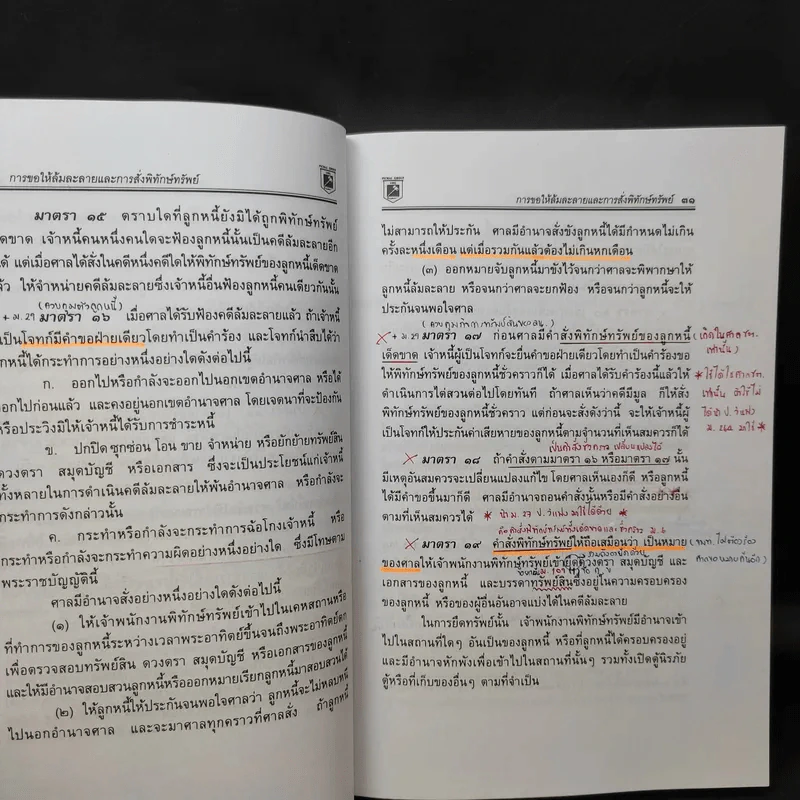 การขอให้ล้มละลายและการสั่งพิทักษ์ทรัพย์
มาตรา ๑๕ ตราบใดที่ลูกหนี้ยังมิได้ถูกพิทักษ์ทรัพย์
ด็ดขาด เจ้าหนี้คนหนึ่งคนใดจะฟ้องลูกหนี้นั้นเป็นคดีล้มละลายอีก
ได้ แต่เมื่อศาลได้สั่งในคดีหนึ่งคดีใดให้พิทักษ์ทรัพย์ของลูกหนี้เด็ดขาด
ล้ว ให้จำหน่ายคดีล้มละลายซึ่งเจ้าหนี้อื่นฟ้องลูกหนี้คนเดียวกันนั้น
(ควบคุมตัวลูกหนี้)
+ ม. 29 มาตรา ๑๖ เมื่อศาลได้รับฟ้องคดีล้มละลายแล้ว ถ้าเจ้าหนี้
เป็นโจทก์มีคำขอฝ่ายเดียวโดยทำเป็นคำร้อง และโจทก์นำสืบได้ว่า
กหนี้ได้กระทำการอย่างหนึ่งอย่างใดดังต่อไปนี้
ก. ออกไปหรือกำลังจะออกไปนอกเขตอำนาจศาล หรือได้
อกไปก่อนแล้ว และคงอยู่นอกเขตอำนาจศาล โดยเจตนาที่จะป้องกัน
หรือประวิงมิให้เจ้าหนี้ได้รับการชำระหนี้
ข. ปกปิด ซุกซ่อน โอน ขาย จำหน่าย หรือยักย้ายทรัพย์สิน
ดวงตรา สมุดบัญชี หรือเอกสาร ซึ่งจะเป็นประโยชน์แก่เจ้าหนี้
ทั้งหลายในการดำเนินคดีล้มละลายให้พ้นอำนาจศาล หรือกำลังจะ
กระทำการดังกล่าวนั้น
ค. กระทำหรือกำลังจะกระทำการฉ้อโกงเจ้าหนี้ หรือ
กระทำหรือกำลังจะกระทำความผิดอย่างหนึ่งอย่างใด ซึ่งมีโทษตาม
พระราชบัญญัตินี้
ศาลมีอำนาจสั่งอย่างหนึ่งอย่างใดดังต่อไปนี้
(๑) ให้เจ้าพนักงานพิทักษ์ทรัพย์เข้าไปในเคหสถานหรือ
ที่ทำการของลูกหนี้ระหว่างเวลาพระอาทิตย์ขึ้นจนถึงพระอาทิตย์ตก
เพื่อตรวจสอบทรัพย์สิน ดวงตรา สมุดบัญชี หรือเอกสารของลูกหนี้
และให้มีอำนาจสอบสวนลูกหนี้หรือออกหมายเรียกลูกหนี้มาสอบสวนได้
(๒) ให้ลูกหนี้ให้ประกันจนพอใจศาลว่า ลูกหนี้จะไม่หลบหนี
ไปนอกอำนาจศาล และจะมาศาลทุกคราวที่ศาลสั่ง ถ้าลูกหนี้
การขอให้ล้มละลายและการสั่งพิทักษ์ทรัพย์ ๓๑
ไม่สามารถให้ประกัน ศาลมีอำนาจสั่งขังลูกหนี้ได้มีกำหนดไม่เกิน
ครั้งละหนึ่งเดือน แต่เมื่อรวมกันแล้วต้องไม่เกินหกเดือน
(๓) ออกหมายจับลูกหนี้มาขังไว้จนกว่าศาลจะพิพากษาให้
ลูกหนี้ล้มละลาย หรือจนกว่าศาลจะยกฟ้อง หรือจนกว่าลูกหนี้จะให้
ประกันจนพอใจศาล
+ ม. 29 มาตรา ๑๗ ก่อนศาลมีคำสั่งพิทักษ์ทรัพย์ของลูกหนี้
เด็ดขาด เจ้าหนี้ผู้เป็นโจทก์จะยื่นคำขอฝ่ายเดียวโดยทำเป็นคำร้องขอ
ให้พิทักษ์ทรัพย์ของลูกหนี้ชั่วคราวก็ได้ เมื่อศาลได้รับคำร้องนี้แล้วให้
ดำเนินการไต่สวนต่อไปโดยทันที ถ้าศาลเห็นว่าคดีมีมูล ก็ให้สั่ง
พิทักษ์ทรัพย์ของลูกหนี้ชั่วคราว แต่ก่อนจะสั่งดังว่านี้ จะให้เจ้าหนี้ผู้
เป็นโจทก์ให้ประกันค่าเสียหายของลูกหนี้ตามจำนวนที่เห็นสมควรก็ได้
มาตรา ๑๘ ถ้าคำสั่งตามมาตรา ๑๖ หรือมาตรา ๑๗ นั้น
มีเหตุอันสมควรจะเปลี่ยนแปลงแก้ไข โดยศาลเห็นเองก็ดี หรือลูกหนี้
ได้มีคำขอขึ้นมาก็ดี ศาลมีอำนาจถอนคำสั่งนั้นหรือมีคำสั่งอย่างอื่น
ตามที่เห็นสมควรได้
มาตรา ๑๙ คำสั่งพิทักษ์ทรัพย์ให้ถือเสมือนว่า เป็นหมาย
ของศาลให้เจ้าพนักงานพิทักษ์ทรัพย์เข้ายึดดวงตรา สมุดบัญชี และ
เอกสารของลูกหนี้ และบรรดาทรัพย์สินซึ่งอยู่ในความครอบครอง
ของลูกหนี้ หรือของผู้อื่นอันอาจแบ่งได้ในคดีล้มละลาย
ในการยึดทรัพย์นั้น เจ้าพนักงานพิทักษ์ทรัพย์มีอำนาจเข้า
ไปในสถานที่ใดๆ อันเป็นของลูกหนี้ หรือที่ลูกหนี้ได้ครอบครองอยู่
และมีอำนาจหักพังเพื่อเข้าไปในสถานที่นั้นๆ รวมทั้งเปิดตู้นิรภัย
ตู้หรือที่เก็บของอื่นๆ ตามที่จำเป็น